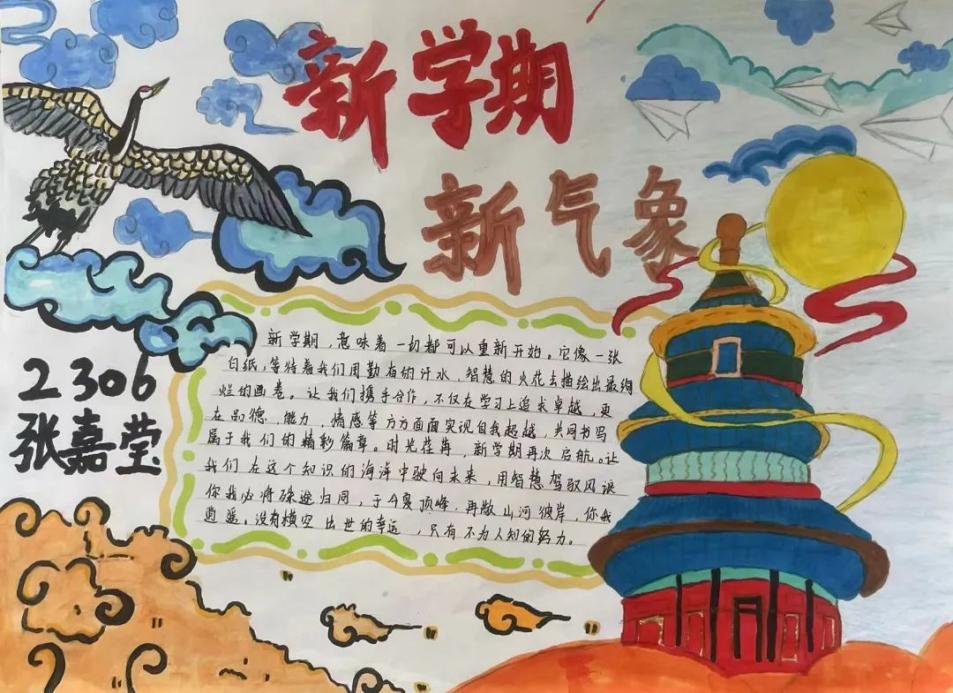 新学期
新气象
2306
张嘉莹
新学期，意味着一切都可以重新开始。它像一张
白纸，等待着我们用勤奋的汗水、智慧的火花去描绘出最绚
烂的画卷。让我们携手合作，不仅在学习上追求卓越，更
在品德、能力、情感等方方面面实现自我超越，共同书写
属于我们的精彩篇章。时光荏苒，新学期再次启航。让
我们在这个知识的海洋中驶向未来，用智慧驾驭风浪
你我必将殊途归同，于今夏顶峰，再敞山河彼岸，你我
逍遥。没有横空出世的幸运，只有不为人知的努力。